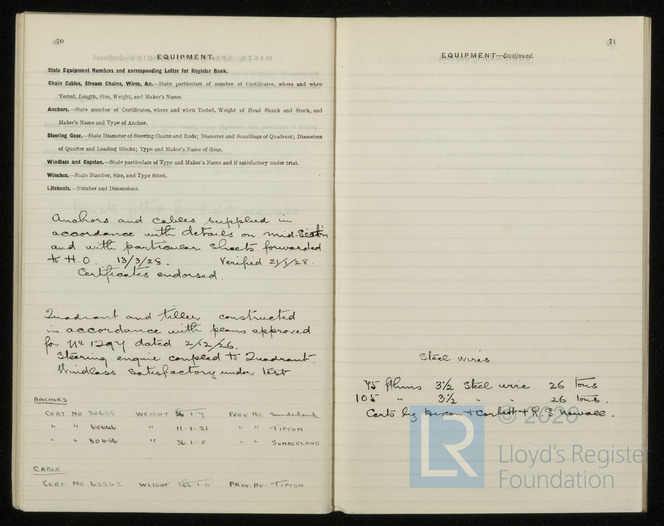 70
EQUIPMENT.
State Equipment Numbers and corresponding Letter for Register Book.
Chain Cables, Stream Chains, Wires, &c.—State particulars of number of Certificates, where and when
Tested, Length, Size, Weight, and Maker's Name.
Anchors.—State number of Certificates, where and when Tested, Weight of Head Shank and Stock, and
Maker's Name and Type of Anchor.
Steering Gear.—State Diameter of Steering Chains and Rods; Diameter and Scantlings of Quadrant; Diameters
of Quarter and Leading Blocks; Type and Maker's Name of Gear.
Windlass and Capstan.—State particulars of Type and Maker's Name and if satisfactory under trial.
Winches.—State Number, Size, and Type fitted.
Lifeboats.—Number and Dimensions.
Anchors and cables supplied in
accordance with details on mid. Section
and with particular sheets forwarded
to H.O. 13/3/28. Verified 21/3/28.
Certificates endorsed.
Quadrant and tiller constructed
in accordance with plans approved
for No dated 2/12/26.
Steering engine coupled to Quadrant.
Windlass satisfactory under test
ANCHORS
CERT. NO 30655 WEIGHT 36-1-7 PROV. HO. Sunderland
" " 60666 " 11-1-21 " " TIPTON
" " 30656 " 36-1-0 " " SUNDERLAND
CABLE
CERT. NO 62562 WEIGHT PROV. HO. TIPTON
71
EQUIPMENT—Continued.
Steel wires
75 fthms 3½ Steel wire 26 tons
105 " 3½ " " 26 tons.
Certs by & R. S. Newall.
© 2020
LR
Lloyd's Register
Foundation